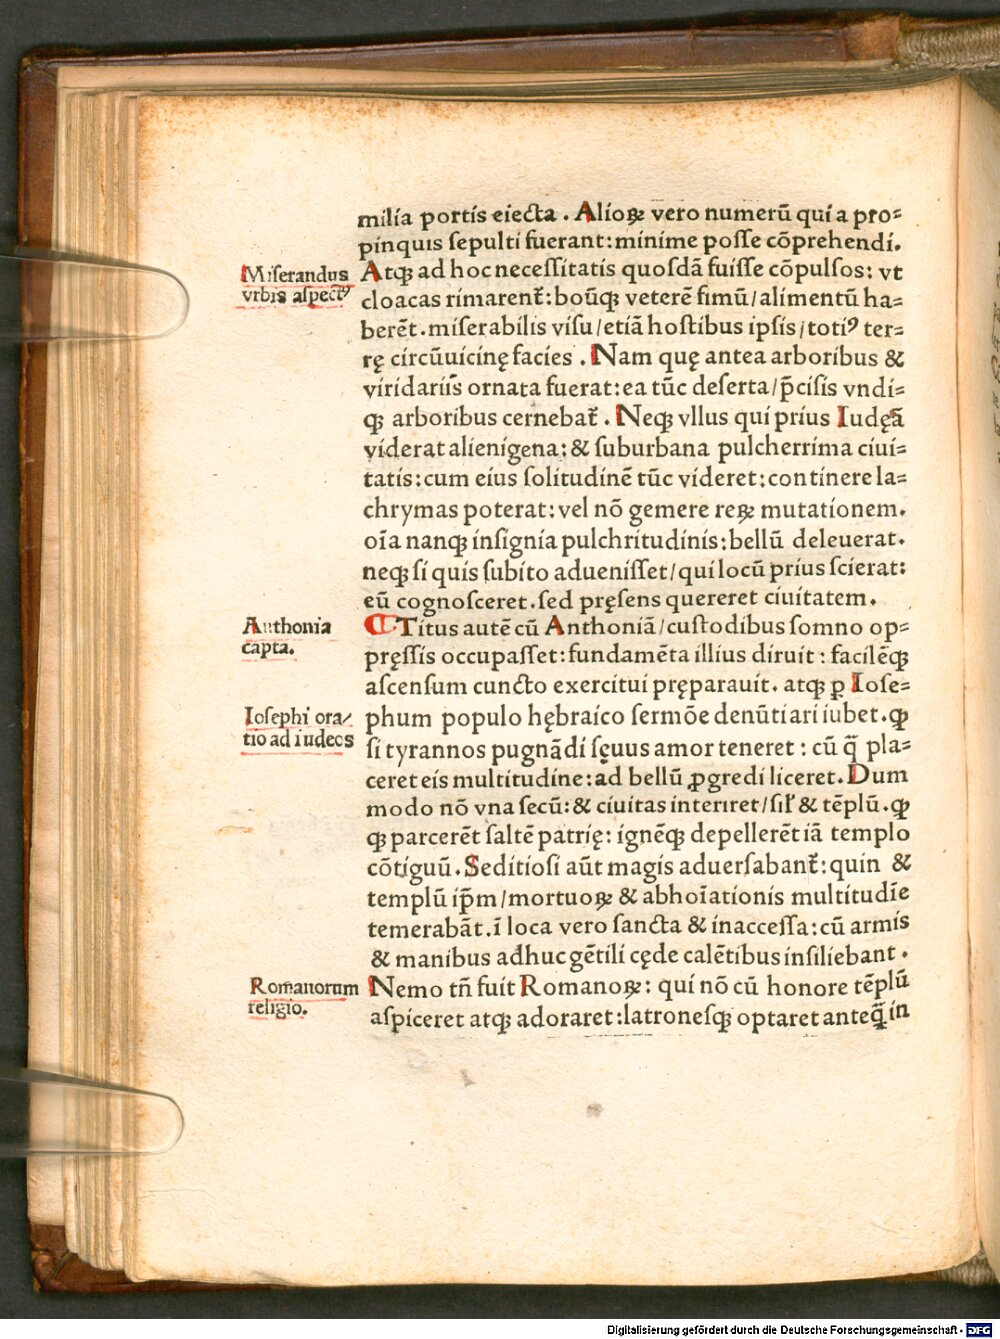 milia portis eiecta . Alioꝝ vero numerū qui a pro⸗
pinquis ſepulti fuerant: minime poſſe cōprehendi.
Miſerandus
vrbis aſpectꝰ
Atqꝫ ad hoc neceſſitatis quoſdā fuiſſe cōpulſos: vt
cloacas rimarent᷑: boūqꝫ veterē fimū/alimentū ha⸗
berēt. miſerabilis viſu/etiā hoſtibus ipſis/totiꝰ ter⸗
rę circūuicinę facies . Nam quę antea arboribus &
viridariis ornata fuerat: ea tūc deſerta/p̄ciſis vndi⸗
qꝫ arboribus cernebat᷑ . Neqꝫ vllus qui prius Iudęā
viderat alienigena: & ſuburbana pulcherrima ciui⸗
tatis: cum eius ſolitudinē tūc videret: continere la⸗
chrymas poterat: vel nō gemere reꝝ mutationem.
oīa nanqꝫ inſignia pulchritudinis: bellū deleuerat.
neqꝫ ſi quis ſubito adueniſſet/qui locū prius ſcierat:
eū cognoſceret. ſed pręſens quereret ciuitatem.
Anthonia
capta.
¶Titus autē cū Anthoniā/cuſtodibus ſomno op⸗
pręſſis occupaſſet: fundamēta illius diruit: facilēqꝫ
aſcenſum cuncto exercitui pręparauit. atqꝫ ꝑ Ioſe⸗
Ioſephi ora⸗
tio ad iudeos
phum populo hębraico ſermōe denūtiari iubet. ꝙ
ſi tyrannos pugnādi ſęuus amor teneret: cū q̄ pla⸗
ceret eis multitudine: ad bellū ꝓgredi liceret. Dum
modo nō vna ſecū: & ciuitas interiret/ſil̄ & tēplū. ꝙ
qꝫ parcerēt ſaltē patrię: ignēqꝫ depellerēt iā templo
cōtiguū. Seditioſi aūt magis aduerſabant᷑: quin &
templū ip̄m/mortuoꝝ & abhoīationis multitudīe
temerabāt. ī loca vero ſancta & inacceſſa: cū armis
& manibus adhuc gētili cęde calētibus inſiliebant .
Romanorum
religio.
Nemo tn̄ fuit Romanoꝝ: qui nō cū honore tēplū
aſpiceret atqꝫ adoraret: latroneſqꝫ optaret anteq̄ in
Digitalisierung gefördert durch die Deutsche Forschungsgemeinschaft - DFG